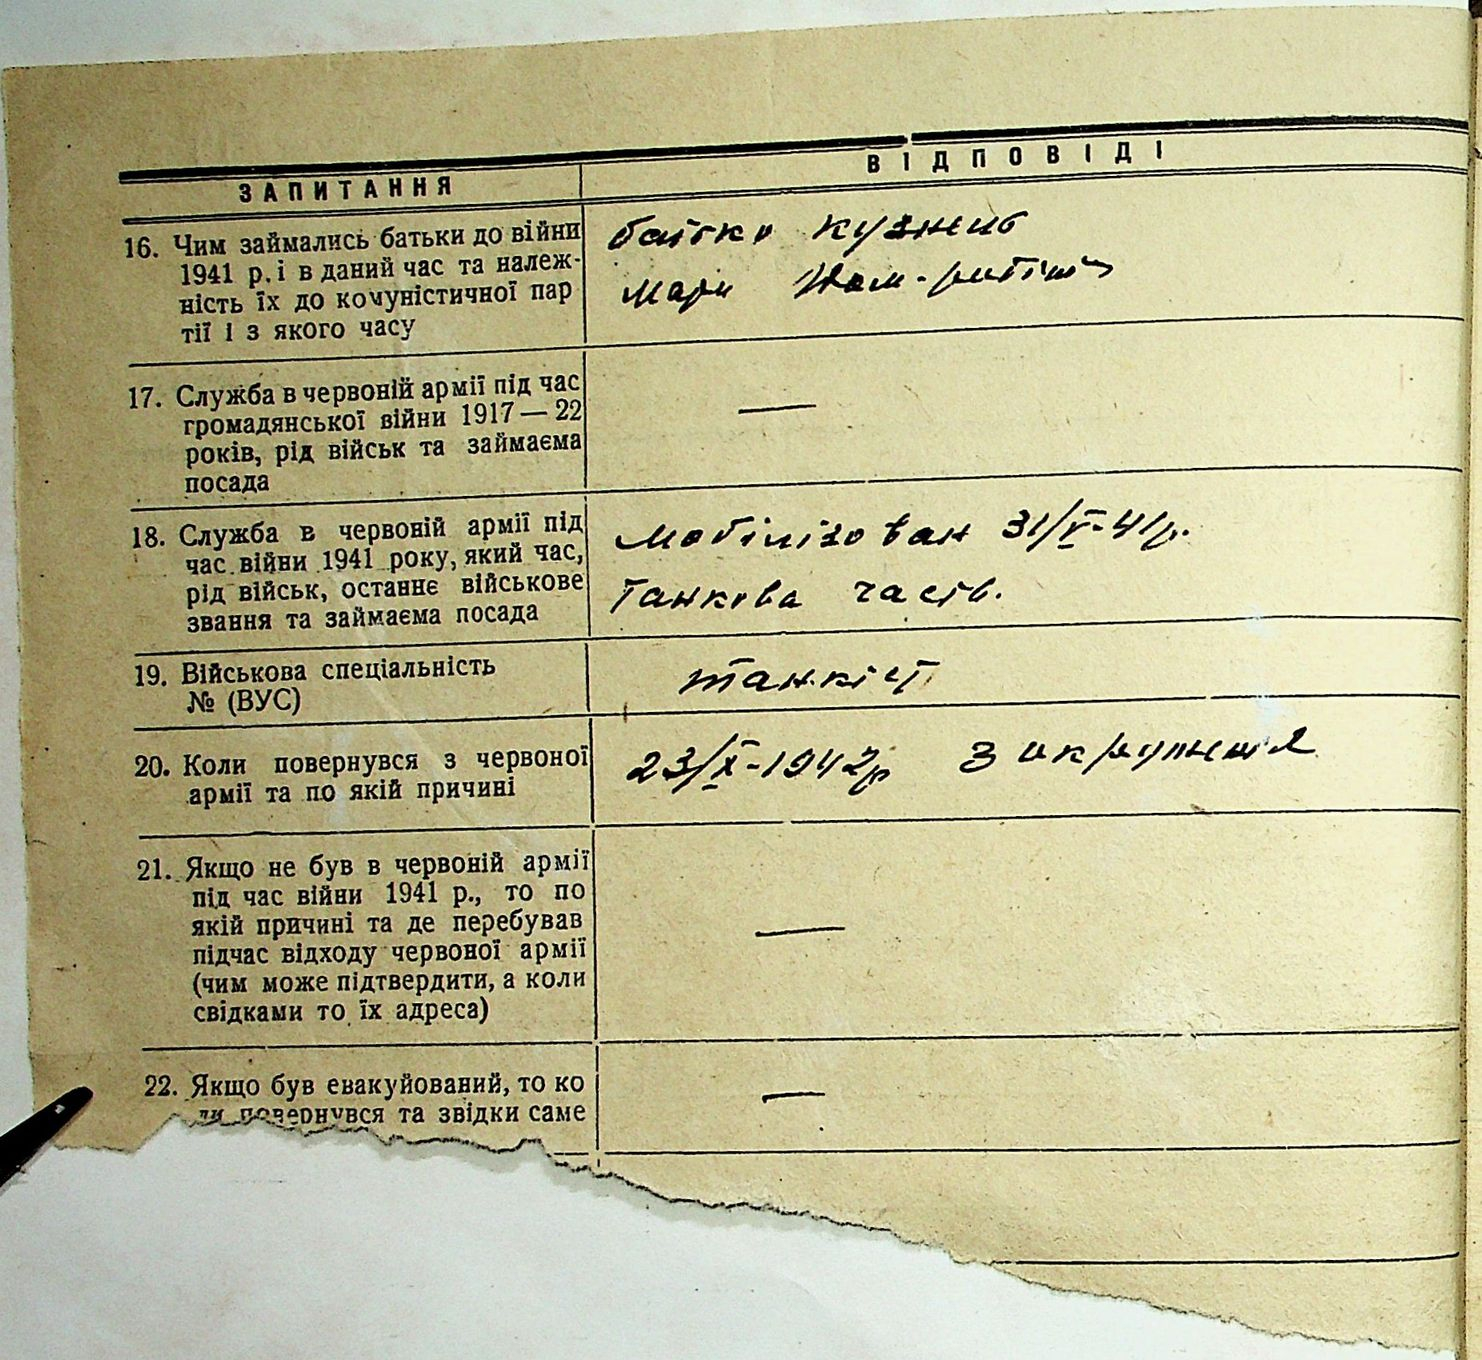 ЗАПИТАННЯ
ВІДПОВІДІ
16. Чим займались батьки до війни
1941 р. і в даний час та належ-
ність їх до комуністичної пар
тії і з якого часу
батько кузнець
Мати Дом-робітн
17. Служба в червоній армії під час
громадянської війни 1917 — 22
років, рід військ та займаєма
посада
—
18. Служба в червоній армії під
час війни 1941 року, який час,
рід військ, останнє військове
звання та займаєма посада
Мобілізован 31/V-41р.
Танкова часть.
19. Військова спеціальність
№ (ВУС)
танкіст
20. Коли повернувся з червоної
армії та по якій причині
23/X-1942р З окруження
21. Якщо не був в червоній армії
під час війни 1941 р., то по
якій причині та де перебував
підчас відходу червоної армії
(чим може підтвердити, а коли
свідками то їх адреса)
—
22. Якщо був евакуйований, то ко
ли повернувся та звідки саме
—